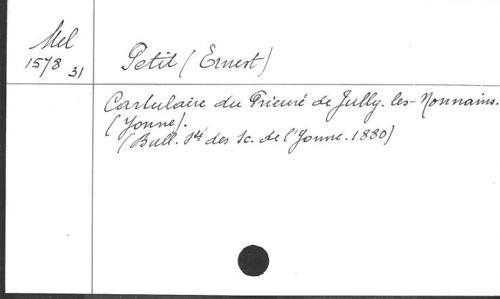 Mel
1578 31
Petit (Ernest)
Cartulaire du Prieuré de Jully-les-Nonnains.
(Yonne).
(Bull. Sté des Sc. de l'Yonne. 1880)